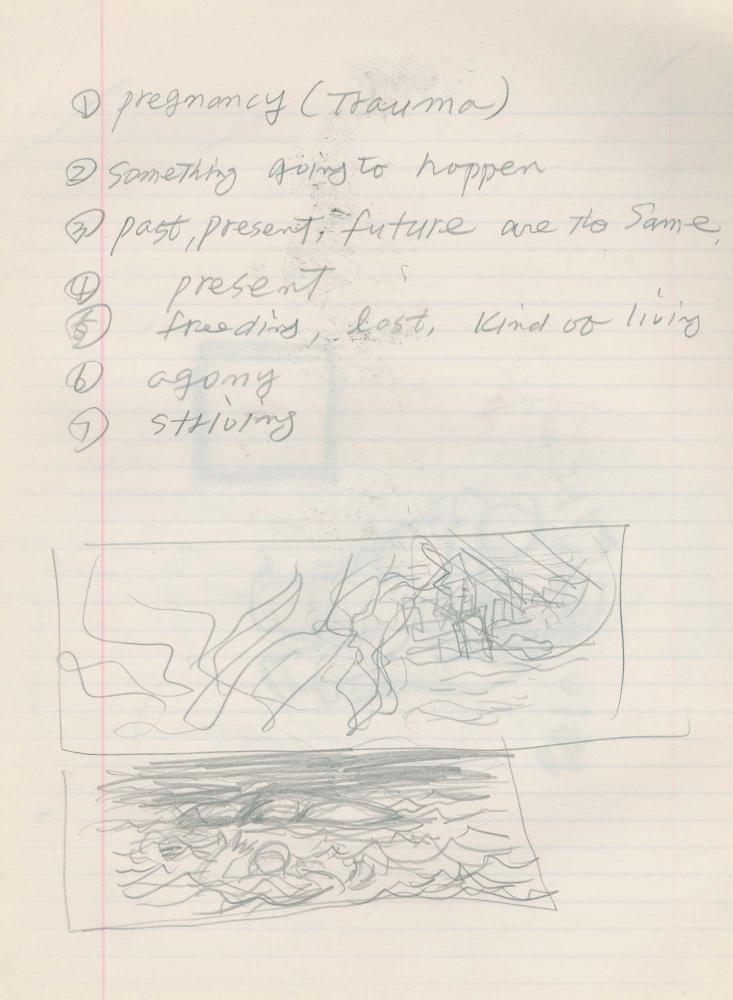 ① pregnancy (Trauma)
② Something going to happen
③ past, present, future are the Same,
④ present
⑤ freeding, lost, Kind of living
⑥ agony
⑦ striving